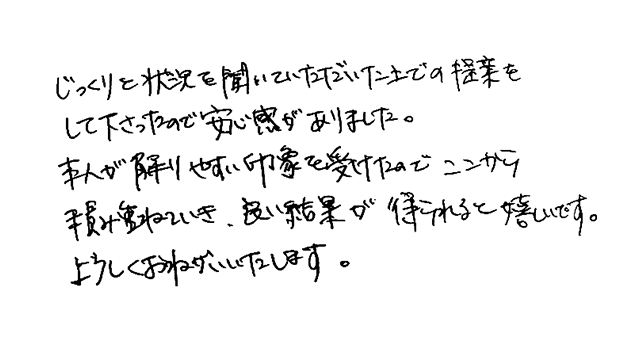 じっくりと状況を聞いていただいた上での提案を
して下さったので安心感がありました。
本人が解りやすい印象を受けたのでここから
積み重ねていき、良い結果が得られると嬉しいです。
よろしくおねがいいたします。